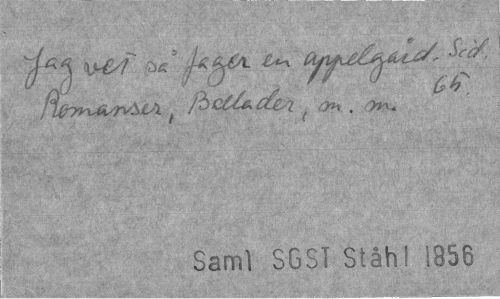 Jag vet så fager en appelgård. Sid.
65.
Romanser, Ballader, m. m.
Saml SGST Ståhl 1856